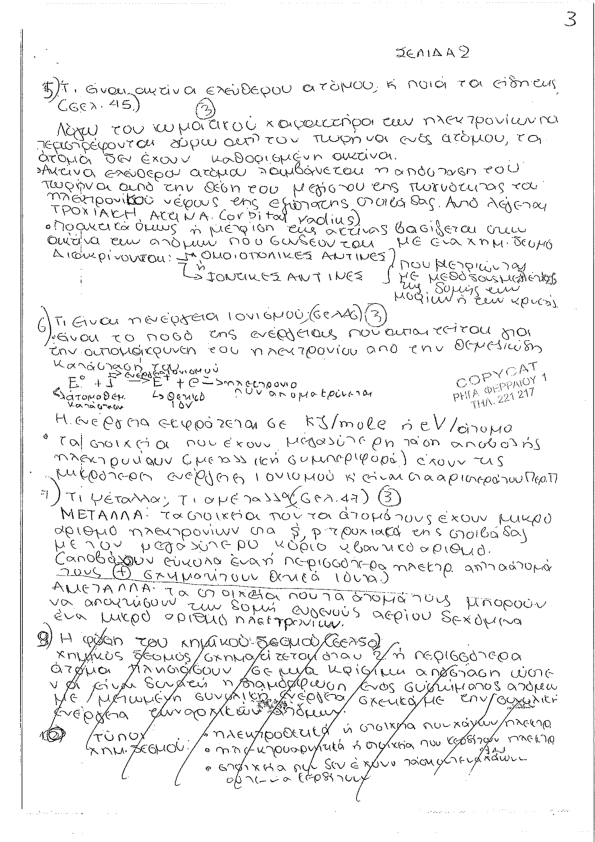 3
ΣΕΛΙΔΑ 2
5) Τι είναι ακτίνα ελεύθερου ατόμου, κ ποιά τα είδη της
(σελ. 45.) (3)
Λόγω του κυματικού χαρακτήρα των ηλεκτρονίων να
περιστρέφονται γύρω απ' τον πυρήνα ενός ατόμου, τα
άτομα δεν έχουν καθορισμένη ακτίνα.
Ακτίνα ελεύθερου ατόμου λαμβάνεται η απόσταση του
πυρήνα από την θέση του μεγίστου της πυκνότητας του
ηλεκτρονικού νέφους της εξώτατης στοιβάδας. Αυτό λέγεται
ΤΡΟΧΙΑΚΗ ΑΚΤΙΝΑ (orbital radius)
• Πρακτικά όμως η μέτρηση της ακτίνας βασίζεται στην
ακτίνα των ατόμων που συνδέονται με ένα χημ. δεσμό
Διακρίνονται: → ΟΜΟΙΟΠΟΛΙΚΕΣ ΑΚΤΙΝΕΣ
ή
→ ΙΟΝΤΙΚΕΣ ΑΚΤΙΝΕΣ
που μετριώνται
με μεθόδους μελέτης
της δομής των
μορίων ή των κρυστ.
6) Τι είναι η ενέργεια ιονισμού (σελ 46) (3)
είναι το ποσό της ενέργειας που απαιτείται για
την απομάκρυνση του ηλεκτρονίου από την θεμελιώδη
κατάσταση του
→ ενέργεια ιονισμού
E° + I → E⁺ + e → ηλεκτρόνιο
που απομακρύνεται
↳ άτομο θεμ. κατάσταση
↳ θετικό ιόν
COPYCAT
ΡΗΓΑ ΦΕΡΡΑΙΟΥ 1
ΤΗΛ. 221 217
Η ενέργεια εκφράζεται σε KJ/mole ή eV/άτομο
• τα στοιχεία που έχουν μεγαλύτερη τάση αποβολής
ηλεκτρονίων (μεταλλική συμπεριφορά) έχουν τις
μικρότερες ενέργειες ιονισμού κ είναι στα αριστερά του Περ.Π
7) Τι μέταλλα; τι αμέταλλα (σελ. 47) (3)
ΜΕΤΑΛΛΑ: τα στοιχεία που τα άτομά τους έχουν μικρό
αριθμό ηλεκτρονίων στα s, p τροχιακά της στοιβάδας
με τον μεγαλύτερο κύριο κβαντικό αριθμό.
(αποβάλουν εύκολα ένα ή περισσότερα ηλεκτρ. απ' τα άτομά
τους (+) σχηματίζουν θετικά ιόντα.)
ΑΜΕΤΑΛΛΑ: τα στοιχεία που τα άτομά τους μπορούν
να αποκτήσουν την δομή ευγενούς αερίου δεχόμενα
ένα μικρό αριθμό ηλεκτρονίων.
9) Η φύση του χημικού δεσμού (σελ 50)
χημικός δεσμός σχηματίζεται όταν 2 ή περισσότερα
άτομα πλησιάσουν σε μια κρίσιμη απόσταση ώστε
να είναι δυνατή η διαμόρφωση ενός συστήματος ατόμων
με μειωμένη συνολική ενέργεια σχετικά με την συνολική
ενέργεια των αρχικών ατόμων.
10) τύποι χημ. δεσμού:
• ηλεκτροθετικά ή στοιχεία που χάνουν ηλεκτρ
• ηλεκτροαρνητικά ή στοιχεία που κερδίζουν ηλεκτρ
• στοιχεία που δεν έχουν τάση